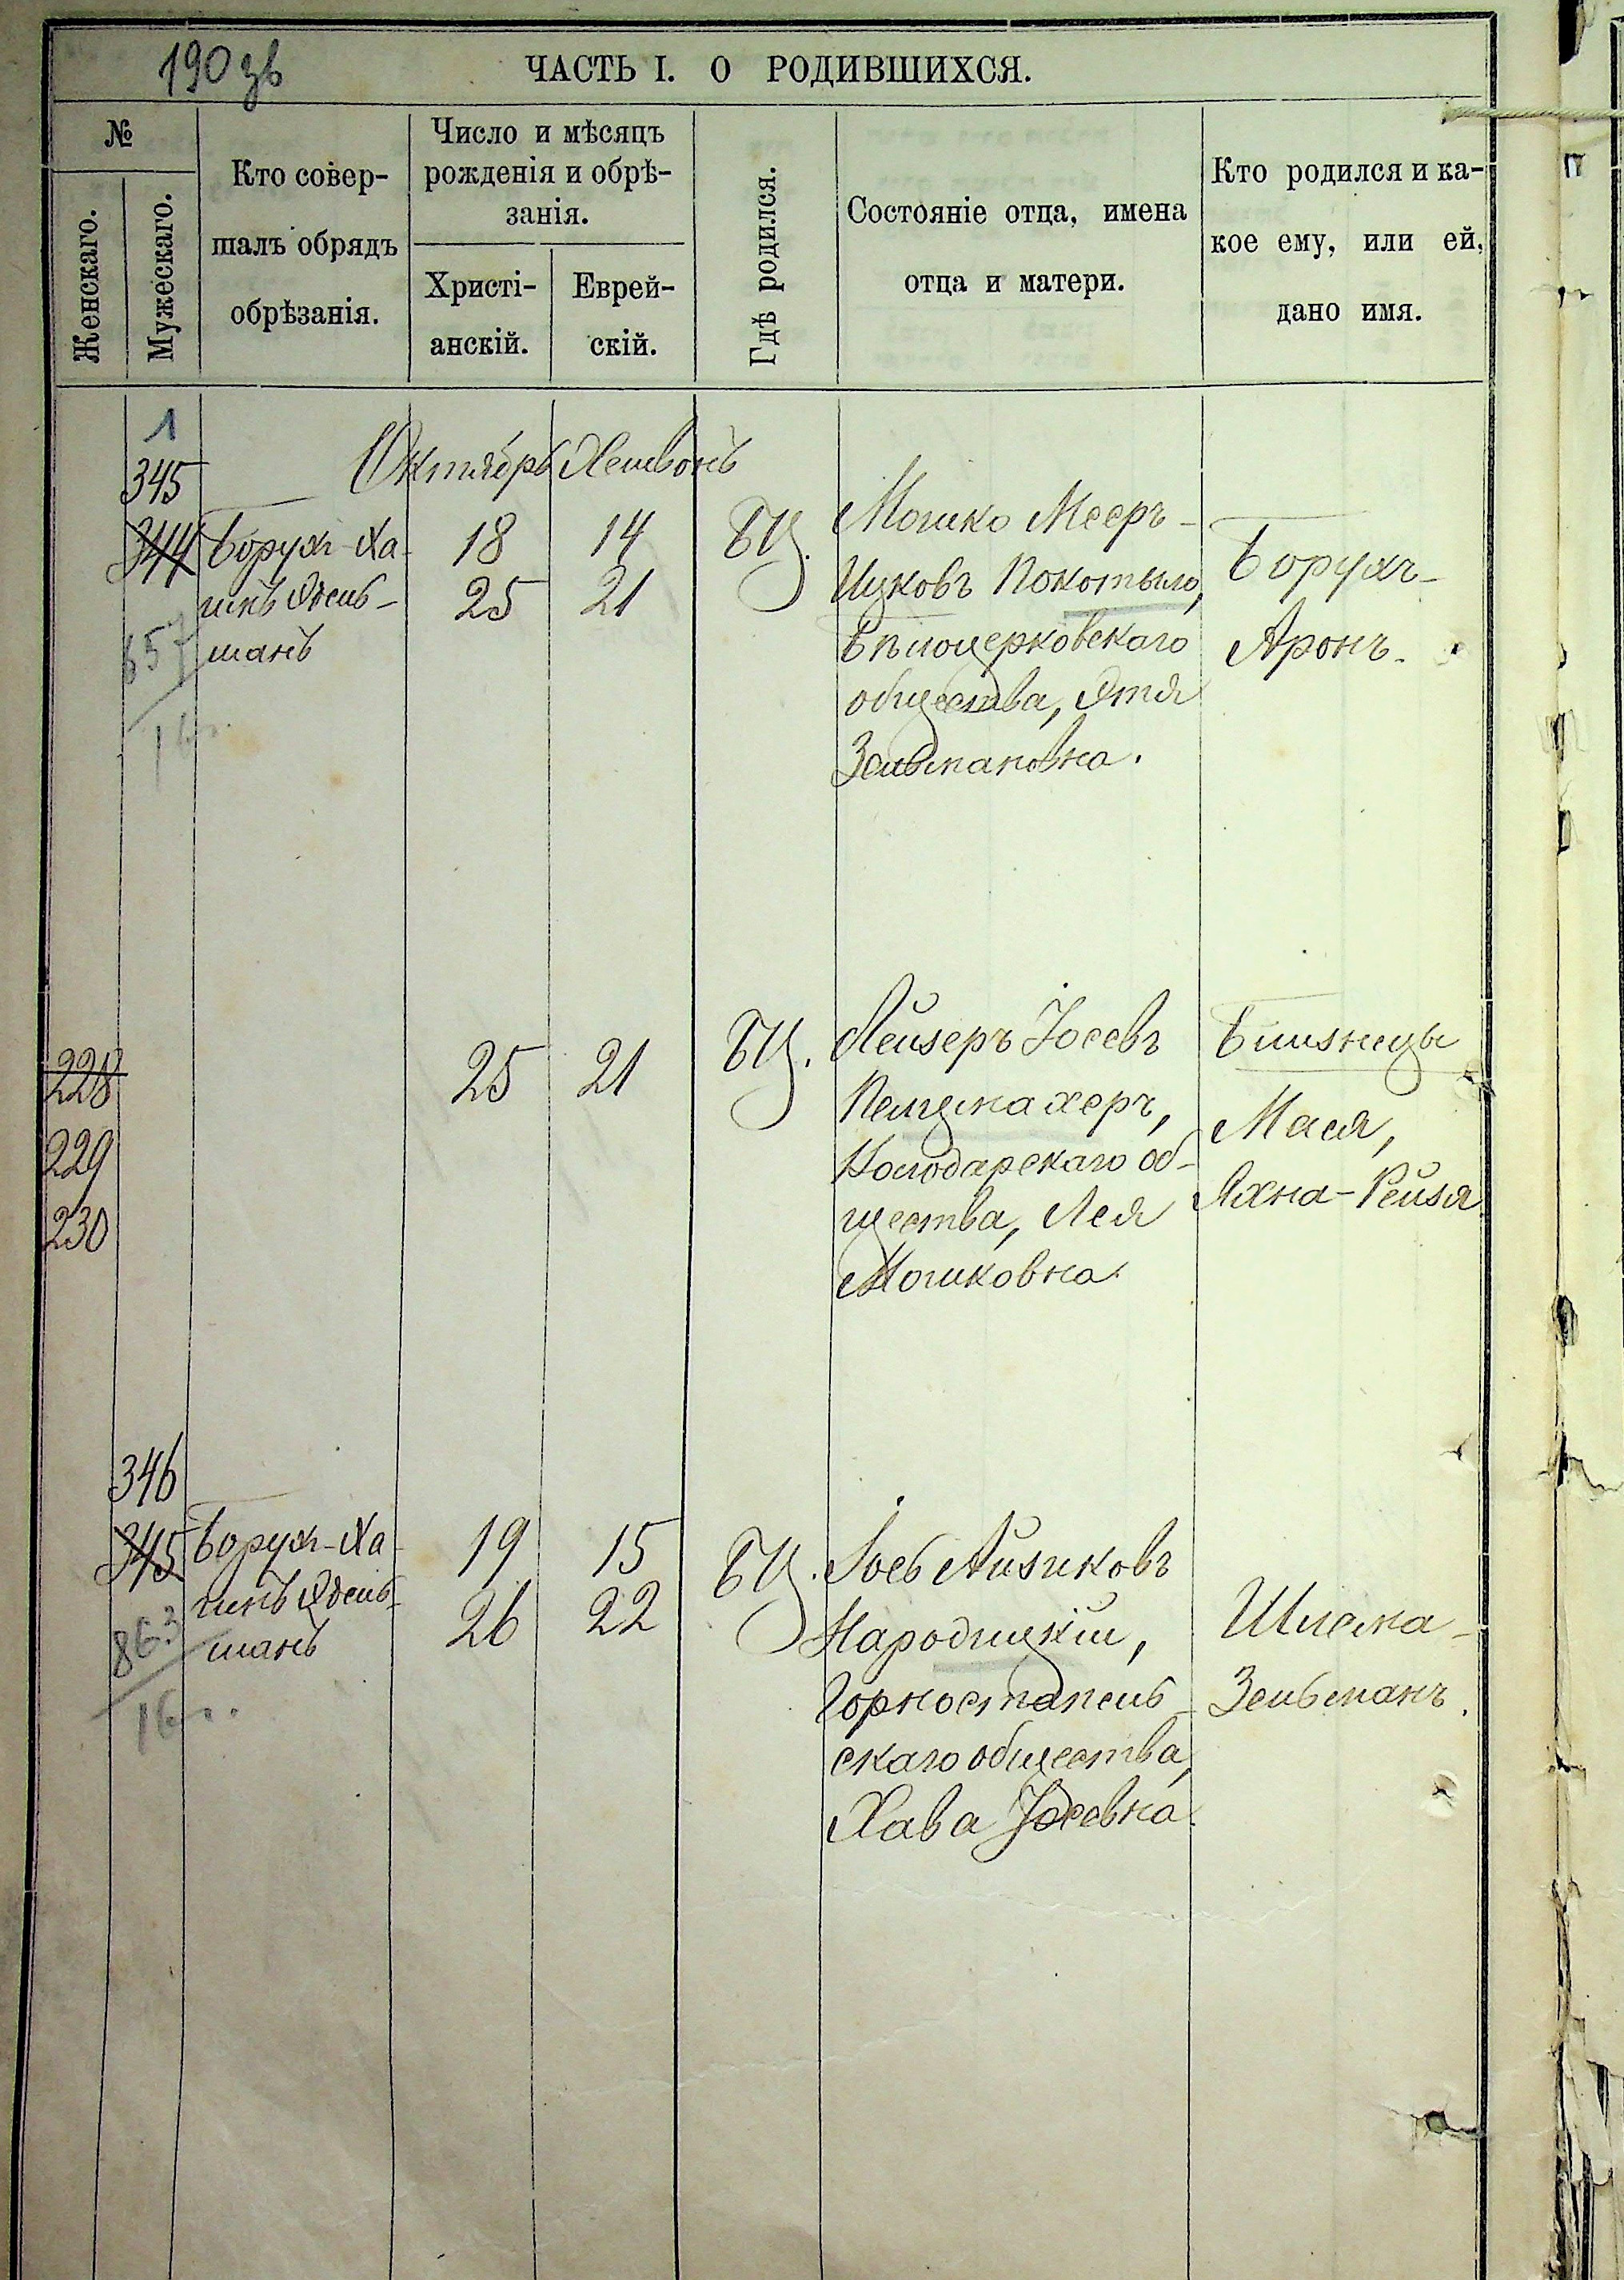 190 зв
ЧАСТЬ I. О РОДИВШИХСЯ.
№
Женскаго.
Мужескаго.
Кто совер-
шалъ обрядъ
обрѣзанія.
Число и мѣсяцъ
рожденія и обрѣ-
занія.
Христі-
анскій.
Еврей-
скій.
Гдѣ родился.
Состояніе отца, имена
отца и матери.
Кто родился и ка-
кое ему, или ей,
дано имя.
1
Октябрь Хешвонъ
345
344
Борухъ-Ха-
имъ Эдель-
манъ
18 14
25 21
БЦ.
Мошко Мееръ-
Ицковъ Покотыло,
Бѣлоцерковскаго
общества, Этя
Зельмановна.
Борухъ-
Аронъ.
857
16
228
229
230
25 21
БЦ.
Лейзеръ Іосевъ
Пельцмахеръ,
Володарскаго об-
щества, Лея
Мошковна.
Близнецы
Мася,
Яхна-Рейзя
346
345
Борухъ-Ха-
имъ Эдель-
манъ
19 15
26 22
БЦ.
Іось Айзиковъ
Народицкій,
Горностапель-
скаго общества,
Хава Іосевна.
Шлема-
Зельманъ.
863
16